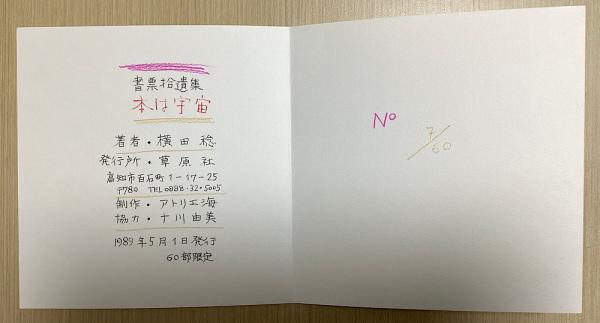 書票拾遺集
本は宇宙
著者・横田稔
発行所・草原社
高知市百石町1-17-25
〒780 TEL0888・32・5005
制作・アトリエ海
協力・十川由美
1989年5月1日発行
60部限定
No
7/60